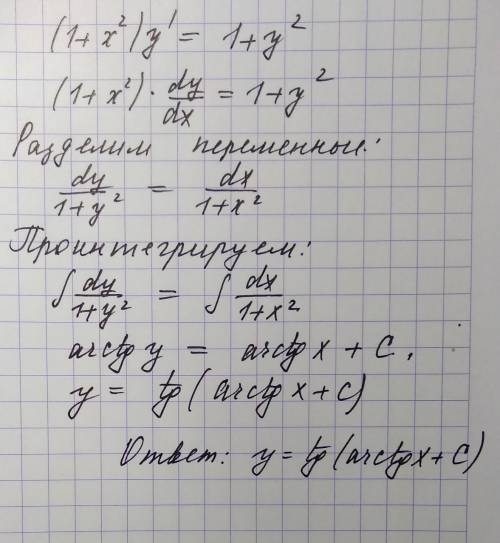 (1+x²)y' = 1+y²
(1+x²)·dy/dx = 1+y²
Разделим переменные:
dy/1+y² = dx/1+x²
Проинтегрируем:
∫dy/1+y² = ∫dx/1+x²
arctg y = arctg x + C.
y = tg(arctg x + C)
Ответ: y = tg(arctg x + C)